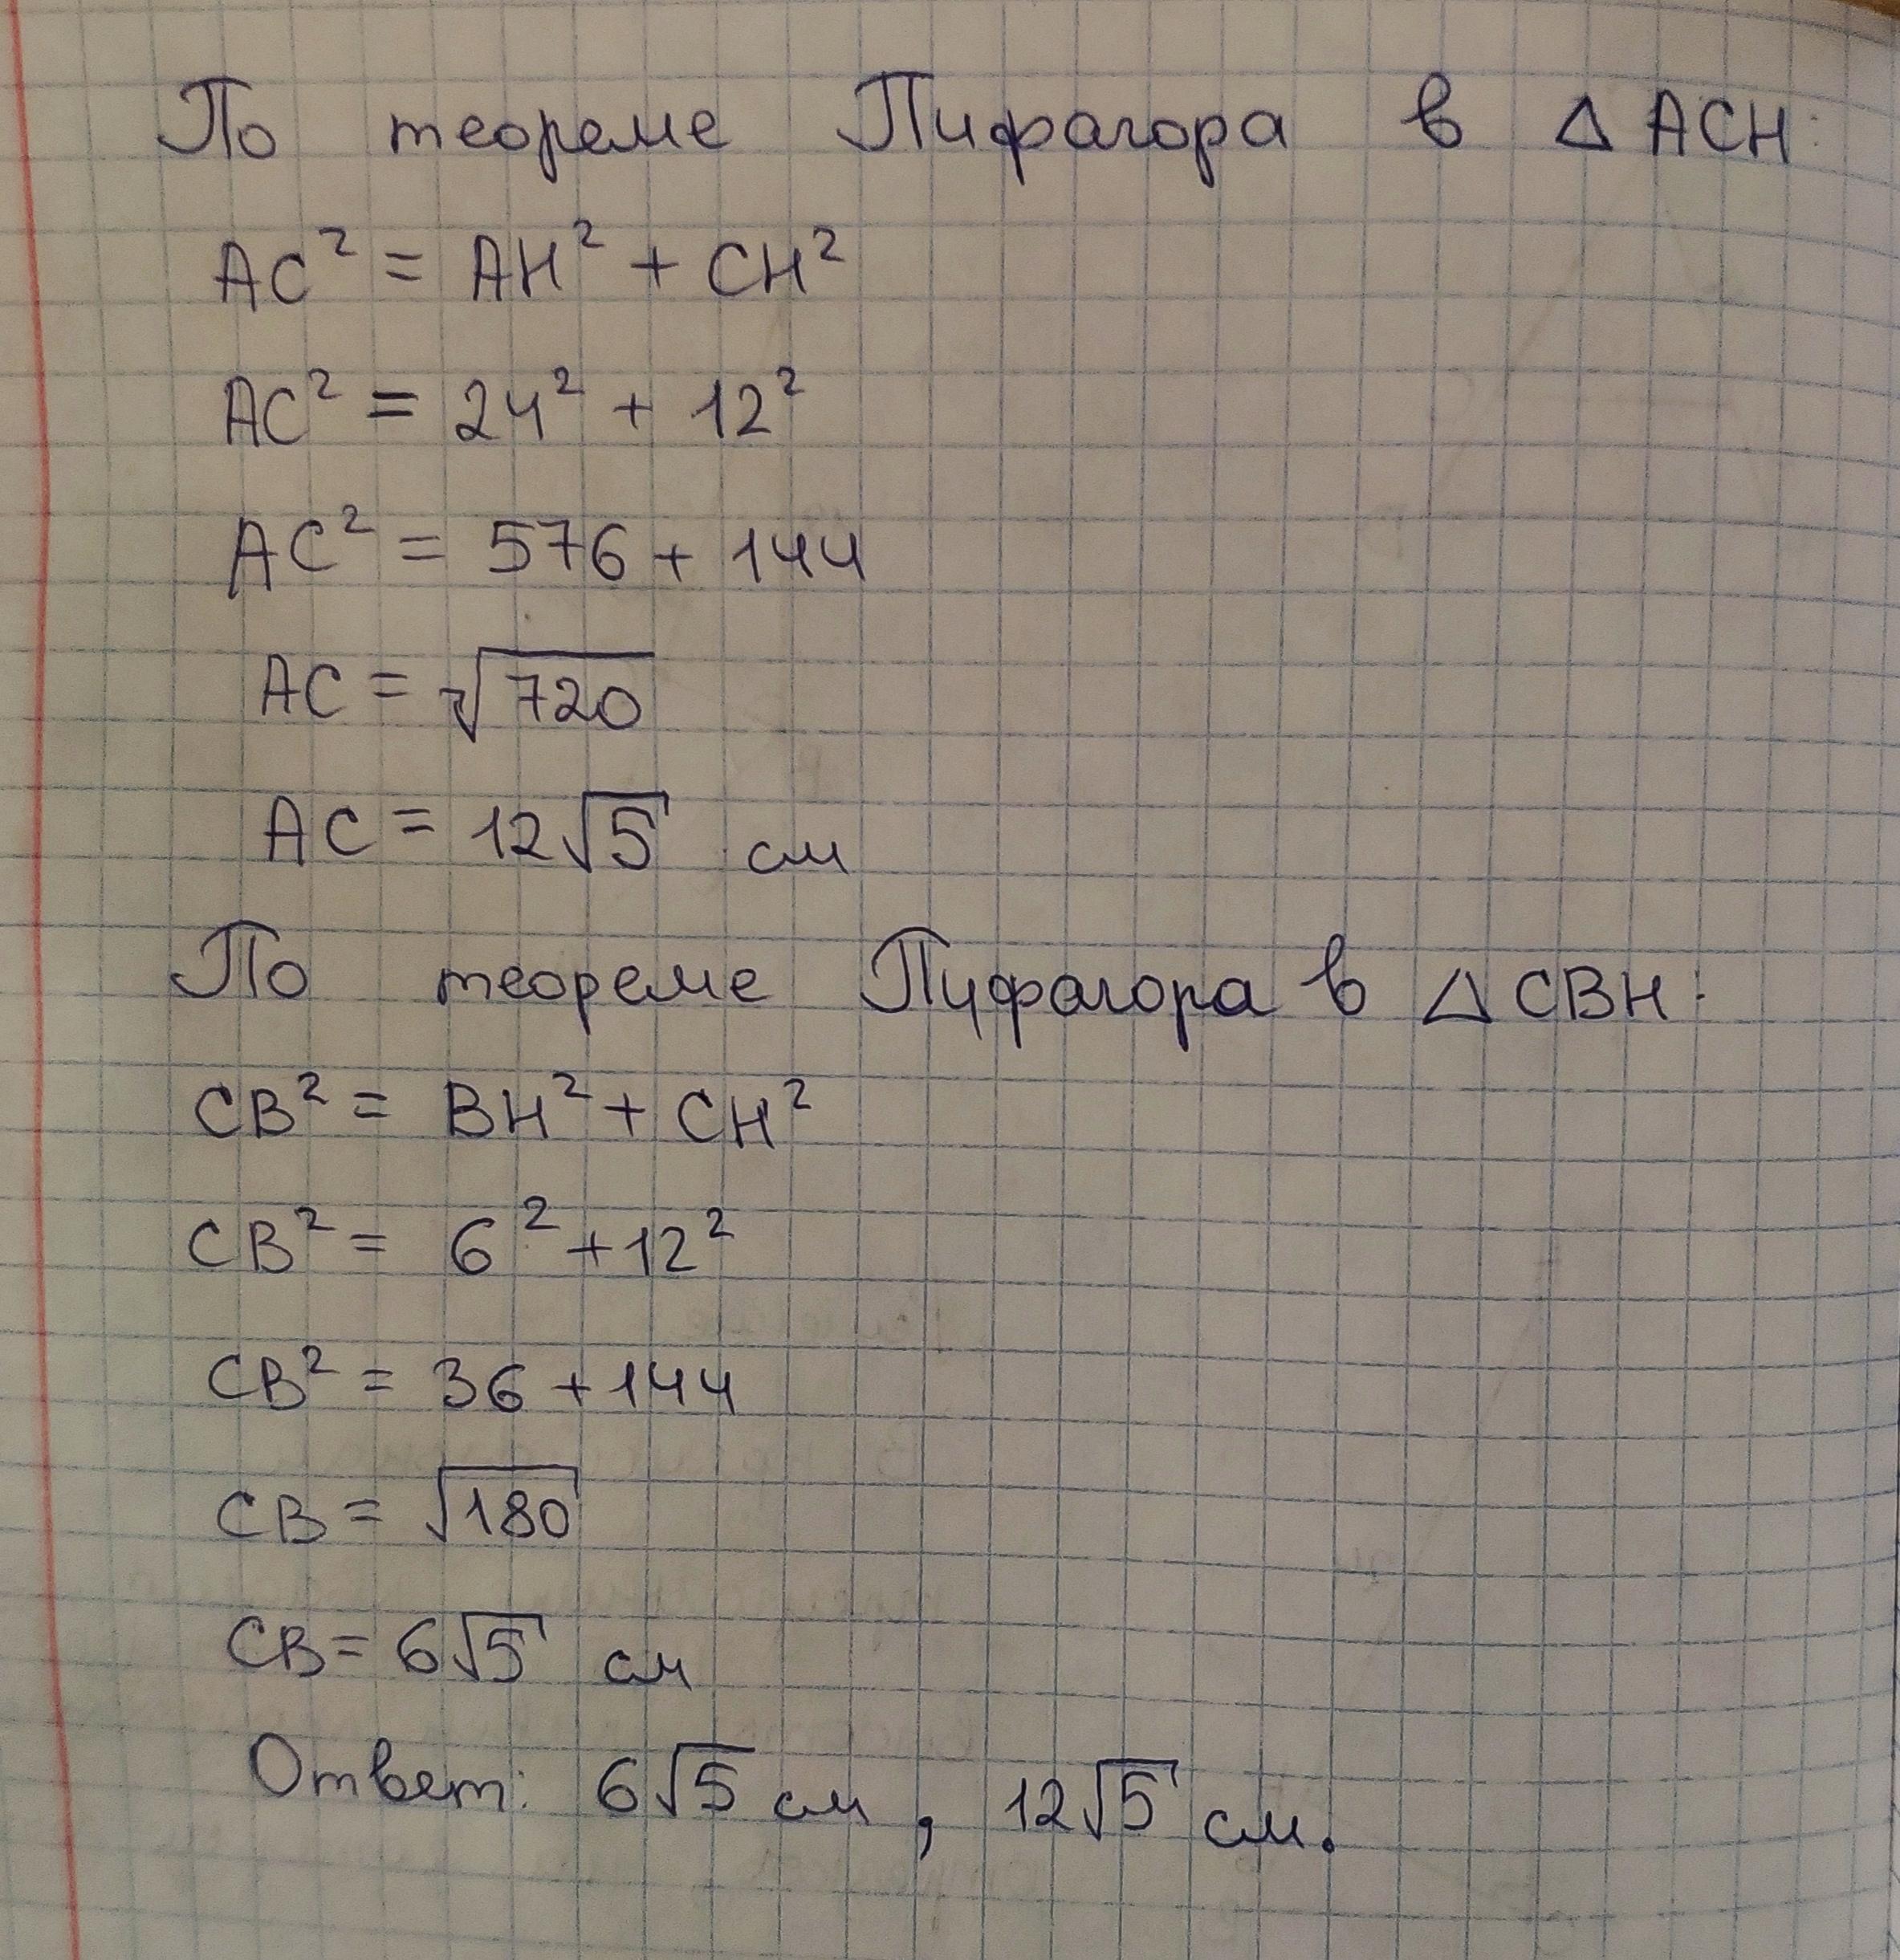 По теореме Пифагора в △ ACH:
AC² = AH² + CH²
AC² = 24² + 12²
AC² = 576 + 144
AC = √720
AC = 12√5 см
По теореме Пифагора в △ CBH:
CB² = BH² + CH²
CB² = 6² + 12²
CB² = 36 + 144
CB = √180
CB = 6√5 см
Ответ: 6√5 см, 12√5 см.